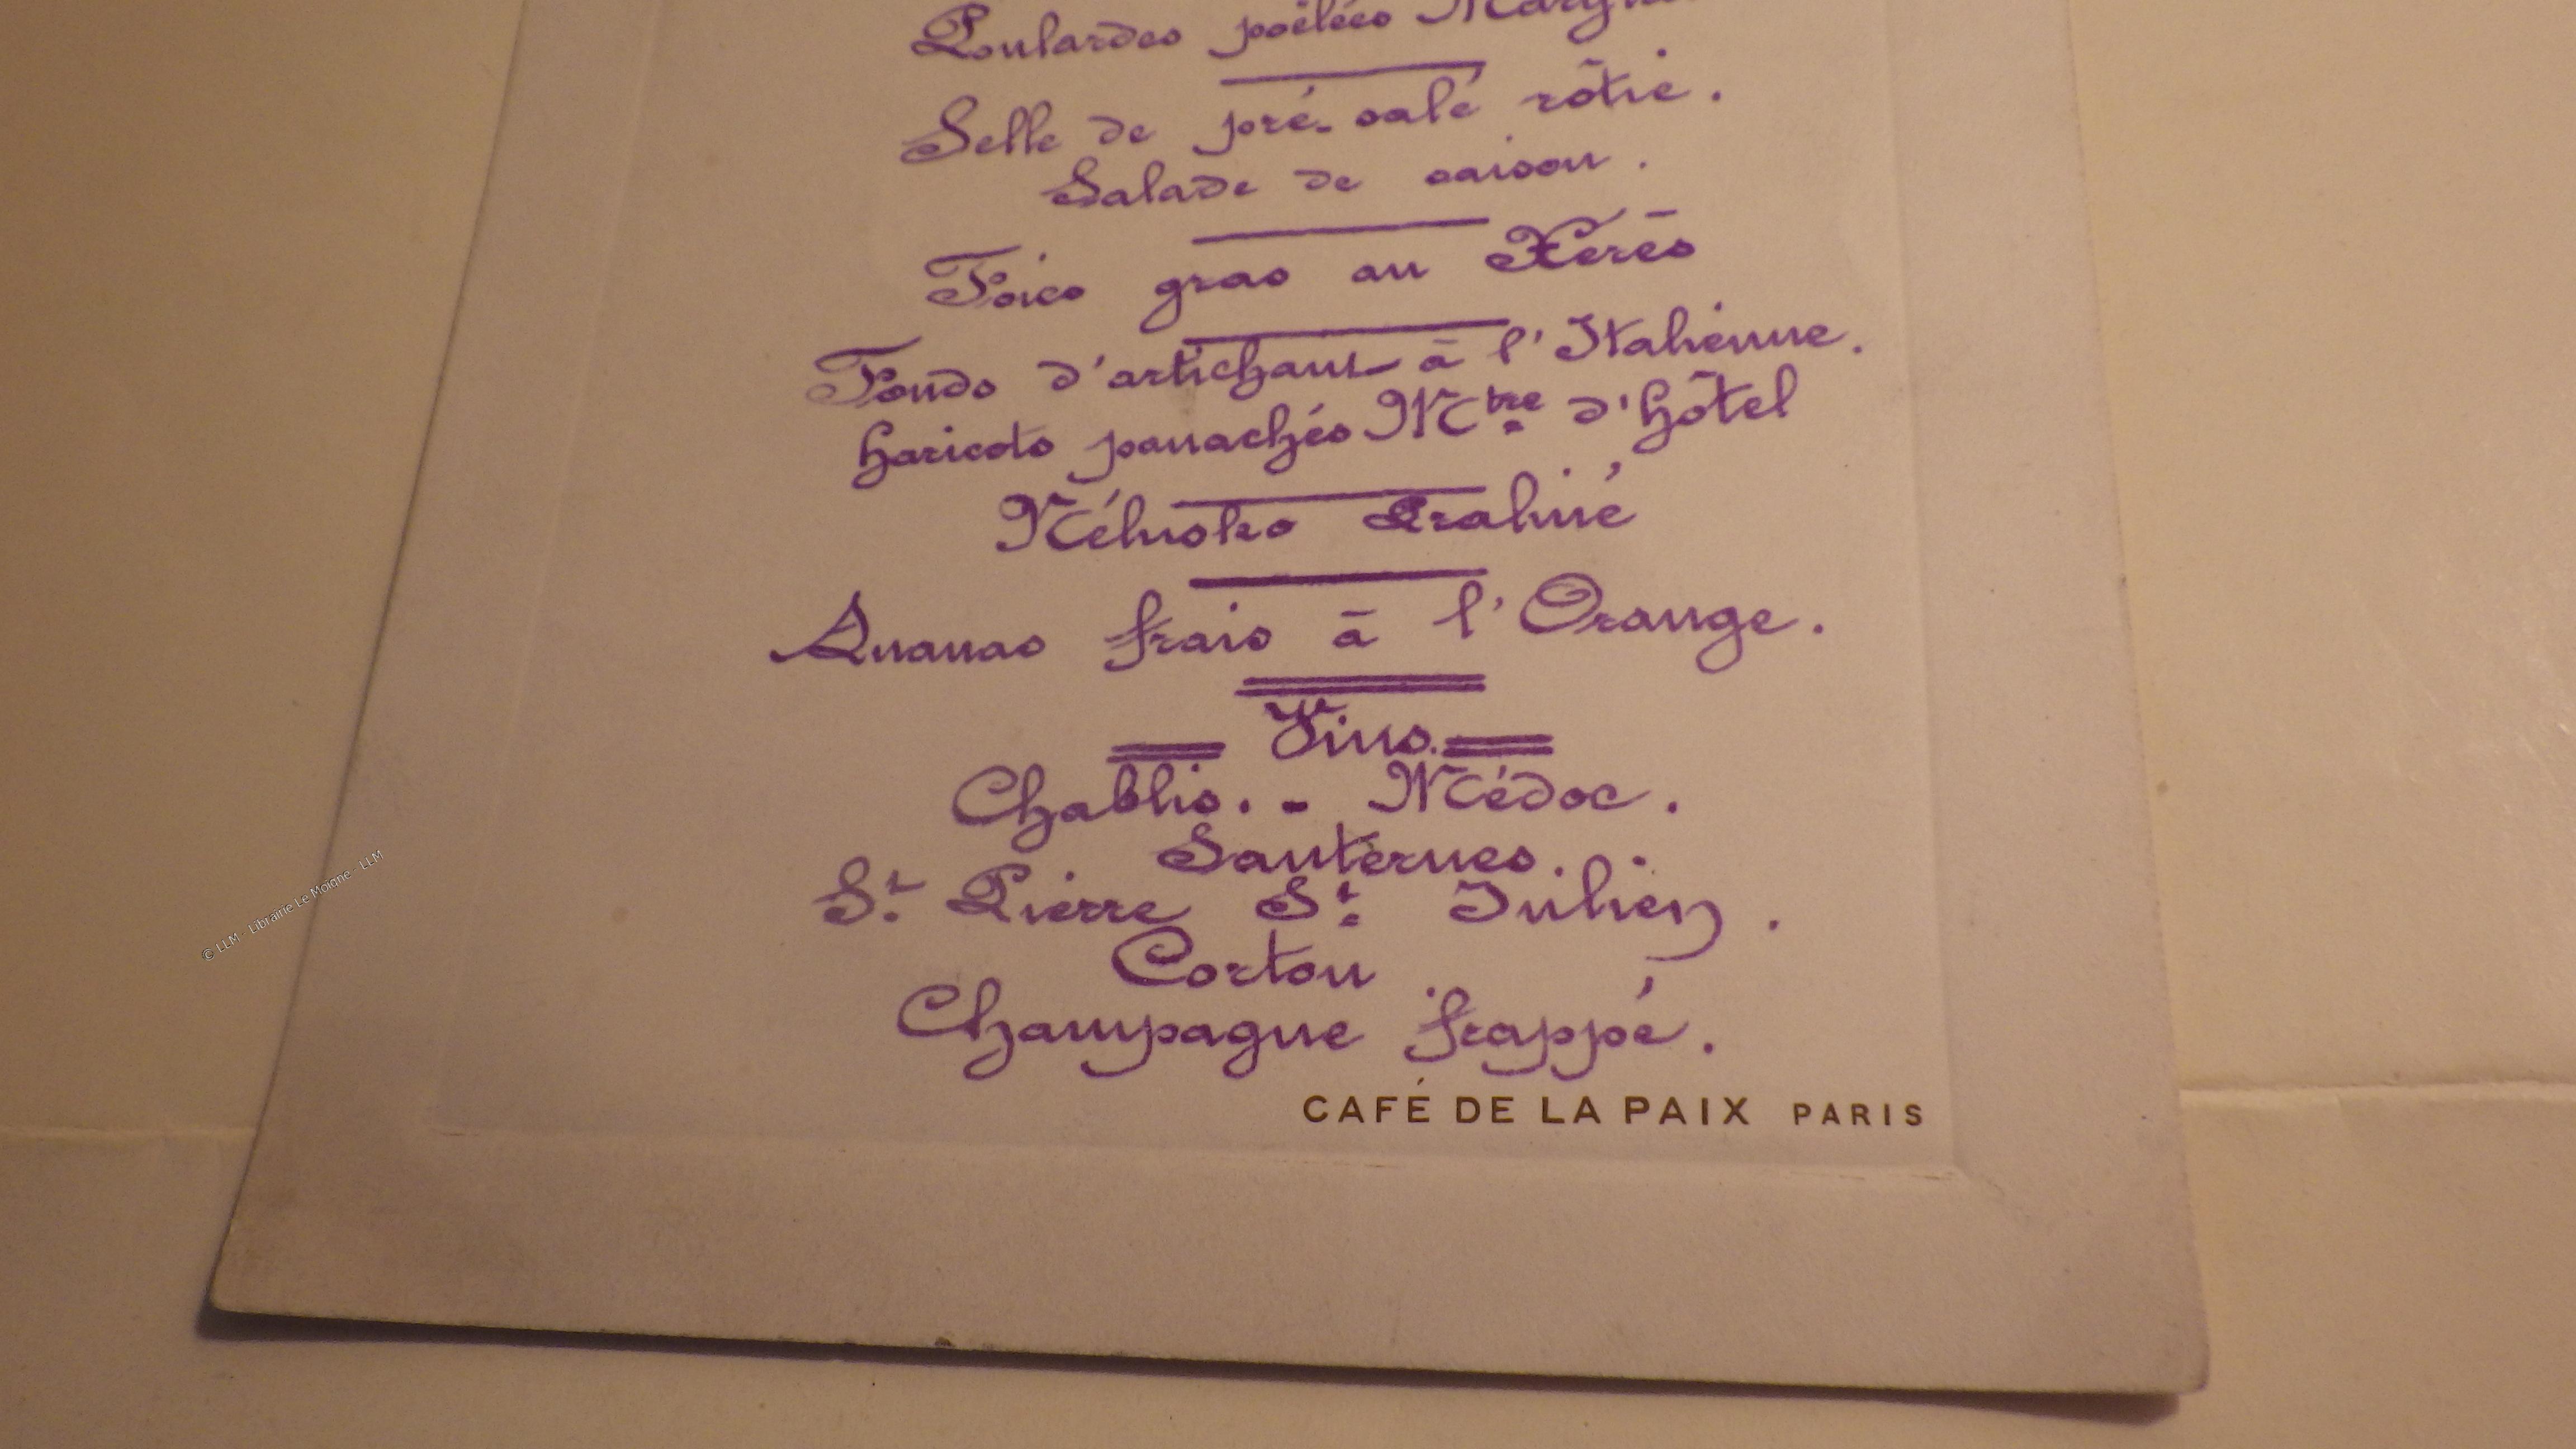 Poulardes poëlées
Selle de pré-salé rôtie.
Salade de saison.
Foies gras au Xérès
Fonds d'artichaut à l'Italienne.
haricots panachés Mtre d'hôtel
Nélusko Praliné
Ananas frais à l'Orange.
Vins.
Chablis. - Médoc.
Sauternes.
St Pierre St Julien.
Corton
Champagne frappé.
CAFÉ DE LA PAIX PARIS
© LLM - Librairie Le Moigne - LLM